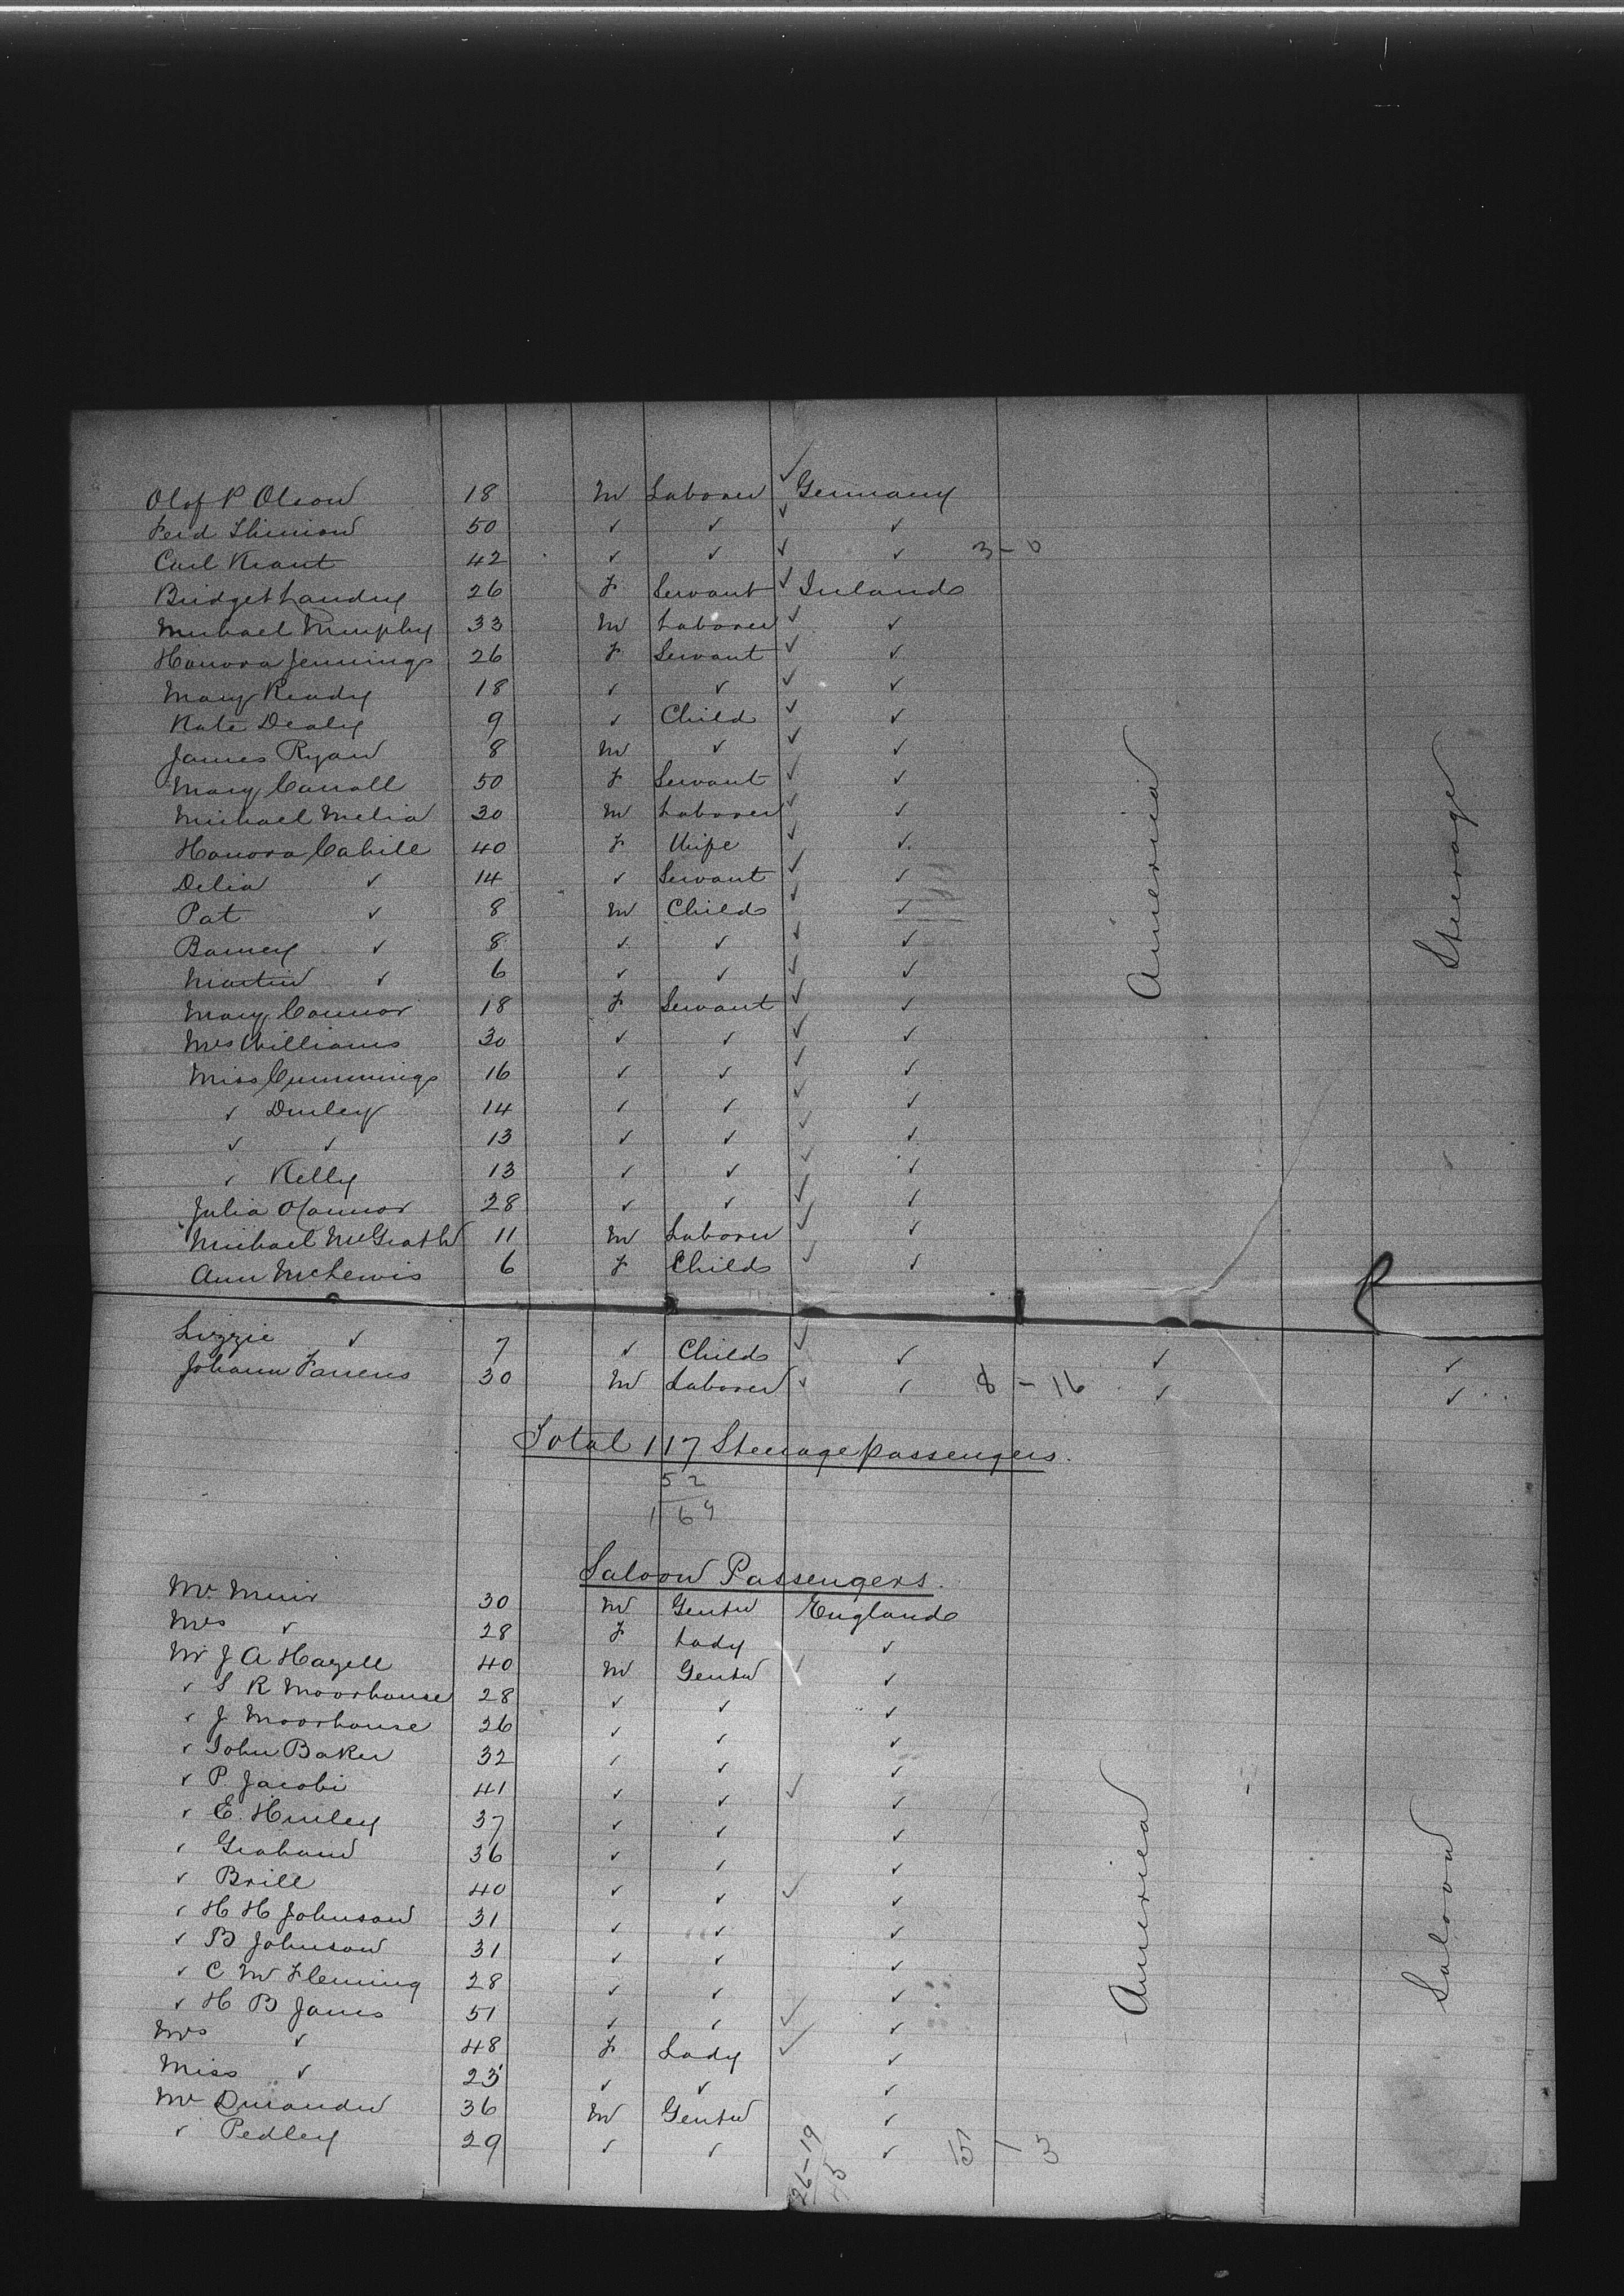 Olof P Olson 18 M Laborer ✓ Germany
Ferd 50 ✓ ✓ ✓ ✓
Carl Krant 42 ✓ ✓ ✓ ✓ 3-0
Bridget Landry 26 F Servant ✓ Ireland
Michael Murphy 33 M Laborer ✓ ✓
Honora Jennings 26 F Servant ✓ ✓
Mary Ready 18 ✓ ✓ ✓ ✓
Kate Dealy 9 ✓ Child ✓ ✓
James Ryan 8 M ✓ ✓ ✓
Mary Carroll 50 F Servant ✓ ✓
Michael Melia 30 M Laborer ✓ ✓
Honora Cahill 40 F Wife ✓ ✓
Delia ✓ 14 ✓ Servant ✓ ✓
Pat ✓ 8 M Child ✓ ✓
Barney ✓ 8 ✓ ✓ ✓ ✓
Martin ✓ 6 ✓ ✓ ✓ ✓
Mary Connor 18 F Servant ✓ ✓
Mrs Williams 30 ✓ ✓ ✓ ✓
Miss Cummings 16 ✓ ✓ ✓ ✓
✓ Durley 14 ✓ ✓ ✓ ✓
✓ ✓ 13 ✓ ✓ ✓ ✓
✓ Kelly 13 ✓ ✓ ✓ ✓
Julia O'Connor 28 ✓ ✓ ✓ ✓
Michael McGrath 11 M Laborer ✓ ✓
Ann McLewis 6 F Child ✓ ✓
America
Steerage
Lizzie ✓ 7 ✓ Child ✓ ✓ ✓ ✓
Johann Farrens 30 M Laborer ✓ ✓ 8-16 ✓ ✓
Total 117 Steerage passengers.
52
169
Saloon Passengers.
Mr. Muir 30 M Gentn England
Mrs ✓ 28 F Lady ✓
Mr J A Hazell 40 M Gentn ✓ ✓
✓ S R Moorhouse 28 ✓ ✓ ✓
✓ J Moorhouse 26 ✓ ✓ ✓
✓ John Baker 32 ✓ ✓ ✓
✓ P. Jacobi 41 ✓ ✓ ✓ ✓
✓ E. Hurley 37 ✓ ✓ ✓
✓ Graham 36 ✓ ✓ ✓
✓ Brill 40 ✓ ✓ ✓ ✓
✓ H H Johnson 31 ✓ ✓ ✓
✓ B Johnson 31 ✓ ✓ ✓
✓ C M Fleming 28 ✓ ✓ ✓
✓ H B James 51 ✓ ✓ ✓ ✓
Mrs ✓ 48 F Lady ✓ ✓
Miss ✓ 23 ✓ ✓ ✓
Mr 36 M Gentn ✓
✓ Pedley 29 ✓ ✓ ✓ 15-3
America
Saloon
26-19
45